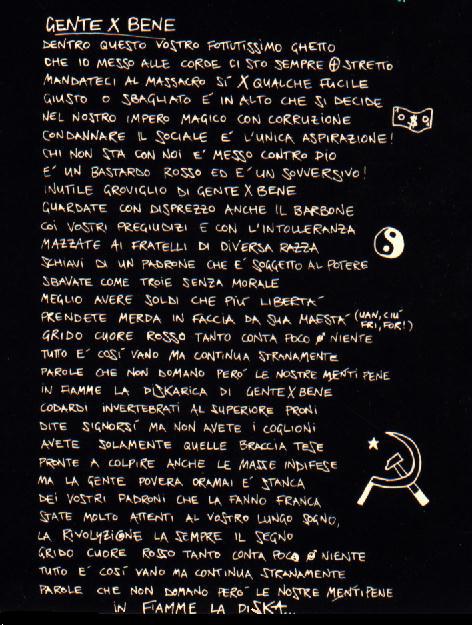 GENTE X BENE
DENTRO QUESTO VOSTRO FOTTUTISSIMO GHETTO
CHE IO MESSO ALLE CORDE CI STO SEMPRE + STRETTO
MANDATECI AL MASSACRO SÍ X QUALCHE FUCILE
GIUSTO O SBAGLIATO E' IN ALTO CHE SI DECIDE
NEL NOSTRO IMPERO MAGICO CON CORRUZIONE
CONDANNARE IL SOCIALE E' L'UNICA ASPIRAZIONE!
CHI NON STA CON NOI E' MESSO CONTRO DIO
E' UN BASTARDO ROSSO ED E' UN SOVVERSIVO!
INUTILE GROVIGLIO DI GENTE X BENE
GUARDATE CON DISPREZZO ANCHE IL BARBONE
COI VOSTRI PREGIUDIZI E CON L'INTOLLERANZA
MAZZATE AI FRATELLI DI DIVERSA RAZZA
SCHIAVI DI UN PADRONE CHE E' SOGGETTO AL POTERE
SBAVATE COME TROIE SENZA MORALE
MEGLIO AVERE SOLDI CHE PIU' LIBERTA'
PRENDETE MERDA IN FACCIA DA SUA MAESTA' (UAN, CIU' FRI, FOR!)
GRIDO CUORE ROSSO TANTO CONTA POCO Ø NIENTE
TUTTO E' COSI' VANO MA CONTINUA STRANAMENTE
PAROLE CHE NON DOMANO PERO' LE NOSTRE MENTI PENE
IN FIAMME LA DISKARICA DI GENTE X BENE
CODARDI INVERTEBRATI AL SUPERIORE PRONI
DITE SIGNORSI' MA NON AVETE I COGLIONI
AVETE SOLAMENTE QUELLE BRACCIA TESE
PRONTE A COLPIRE ANCHE LE MASSE INDIFESE
MA LA GENTE POVERA ORAMAI E' STANCA
DEI VOSTRI PADRONI CHE LA FANNO FRANCA
STATE MOLTO ATTENTI AL VOSTRO LUNGO SOGNO,
LA RIVOLUZIONE LA SEMPRE IL SEGNO
GRIDO CUORE ROSSO TANTO CONTA POCO Ø NIENTE
TUTTO E' COSI' VANO MA CONTINUA STRANAMENTE
PAROLE CHE NON DOMANO PERO' LE NOSTRE MENTI PENE
IN FIAMME LA DISKA...